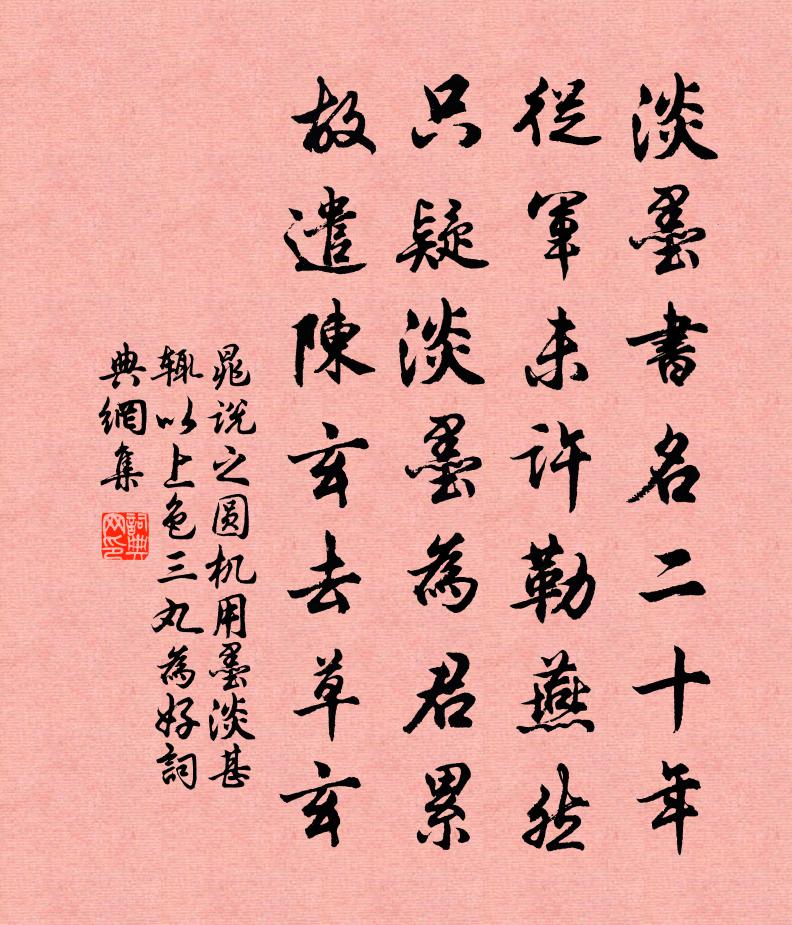 淡墨書名二十年
從軍未許勒燕然
只疑淡墨為君累
故遣陳玄去草玄
晁说之圆机用墨淡甚
輙以上色三丸為好詞
典網集
詞典
网印